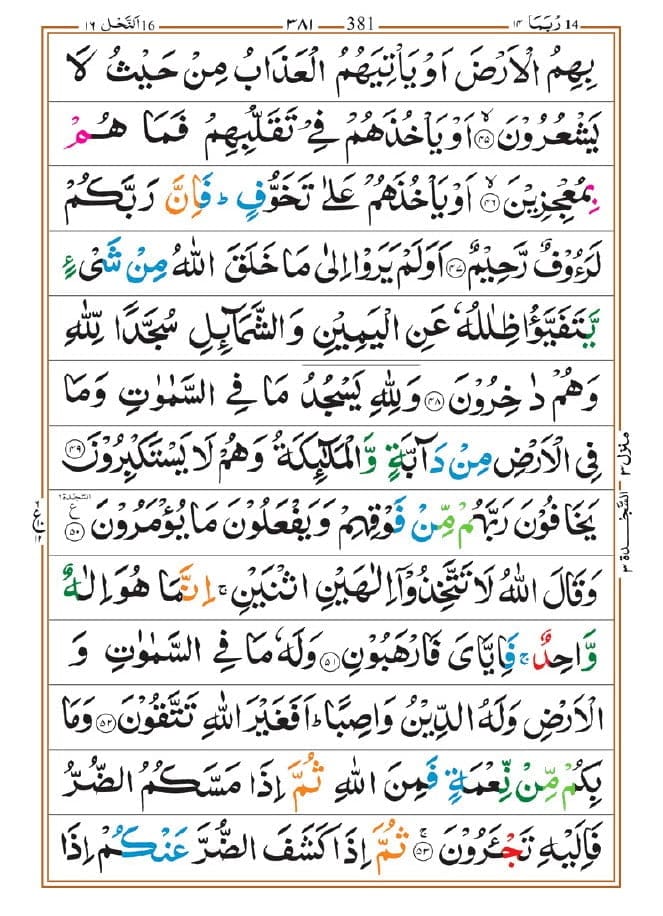 14 رُبَمَا ١٤ 381 ٣٨١ 16 اَلنَّحْل ١٦
بِهِمُ الْاَرْضَ اَوْ يَاْتِيَهُمُ الْعَذَابُ مِنْ حَيْثُ لَا
يَشْعُرُوْنَ ۙ﴿۴۵﴾ اَوْ يَاْخُذَهُمْ فِيْ تَقَلُّبِهِمْ فَمَا هُمْ
بِمُعْجِزِيْنَ ۙ﴿۴۶﴾ اَوْ يَاْخُذَهُمْ عَلٰى تَخَوُّفٍ ؕ فَاِنَّ رَبَّكُمْ
لَرَءُوْفٌ رَّحِيْمٌ ﴿۴۷﴾ اَوَلَمْ يَرَوْا اِلٰى مَا خَلَقَ اللّٰهُ مِنْ شَيْءٍ
يَّتَفَيَّؤُا ظِلٰلُهٗ عَنِ الْيَمِيْنِ وَالشَّمَآئِلِ سُجَّدًا لِّلّٰهِ
وَهُمْ دٰخِرُوْنَ ﴿۴۸﴾ وَلِلّٰهِ يَسْجُدُ مَا فِي السَّمٰوٰتِ وَمَا
فِي الْاَرْضِ مِنْ دَآبَّةٍ وَّالْمَلٰٓئِكَةُ وَهُمْ لَا يَسْتَكْبِرُوْنَ ﴿۴۹﴾
يَخَافُوْنَ رَبَّهُمْ مِّنْ فَوْقِهِمْ وَيَفْعَلُوْنَ مَا يُؤْمَرُوْنَ ﴿۵۰﴾
وَقَالَ اللّٰهُ لَا تَتَّخِذُوْٓا اِلٰهَيْنِ اثْنَيْنِ ۚ اِنَّمَا هُوَ اِلٰهٌ
وَّاحِدٌ ۚ فَاِيَّايَ فَارْهَبُوْنِ ﴿۵۱﴾ وَلَهٗ مَا فِي السَّمٰوٰتِ وَ
الْاَرْضِ وَلَهُ الدِّيْنُ وَاصِبًا ؕ اَفَغَيْرَ اللّٰهِ تَتَّقُوْنَ ﴿۵۲﴾ وَمَا
بِكُمْ مِّنْ نِّعْمَةٍ فَمِنَ اللّٰهِ ثُمَّ اِذَا مَسَّكُمُ الضُّرُّ
فَاِلَيْهِ تَجْـَٔرُوْنَ ۚ﴿۵۳﴾ ثُمَّ اِذَا كَشَفَ الضُّرَّ عَنْكُمْ اِذَا
منزل ٣
السَّجْدَة ٣